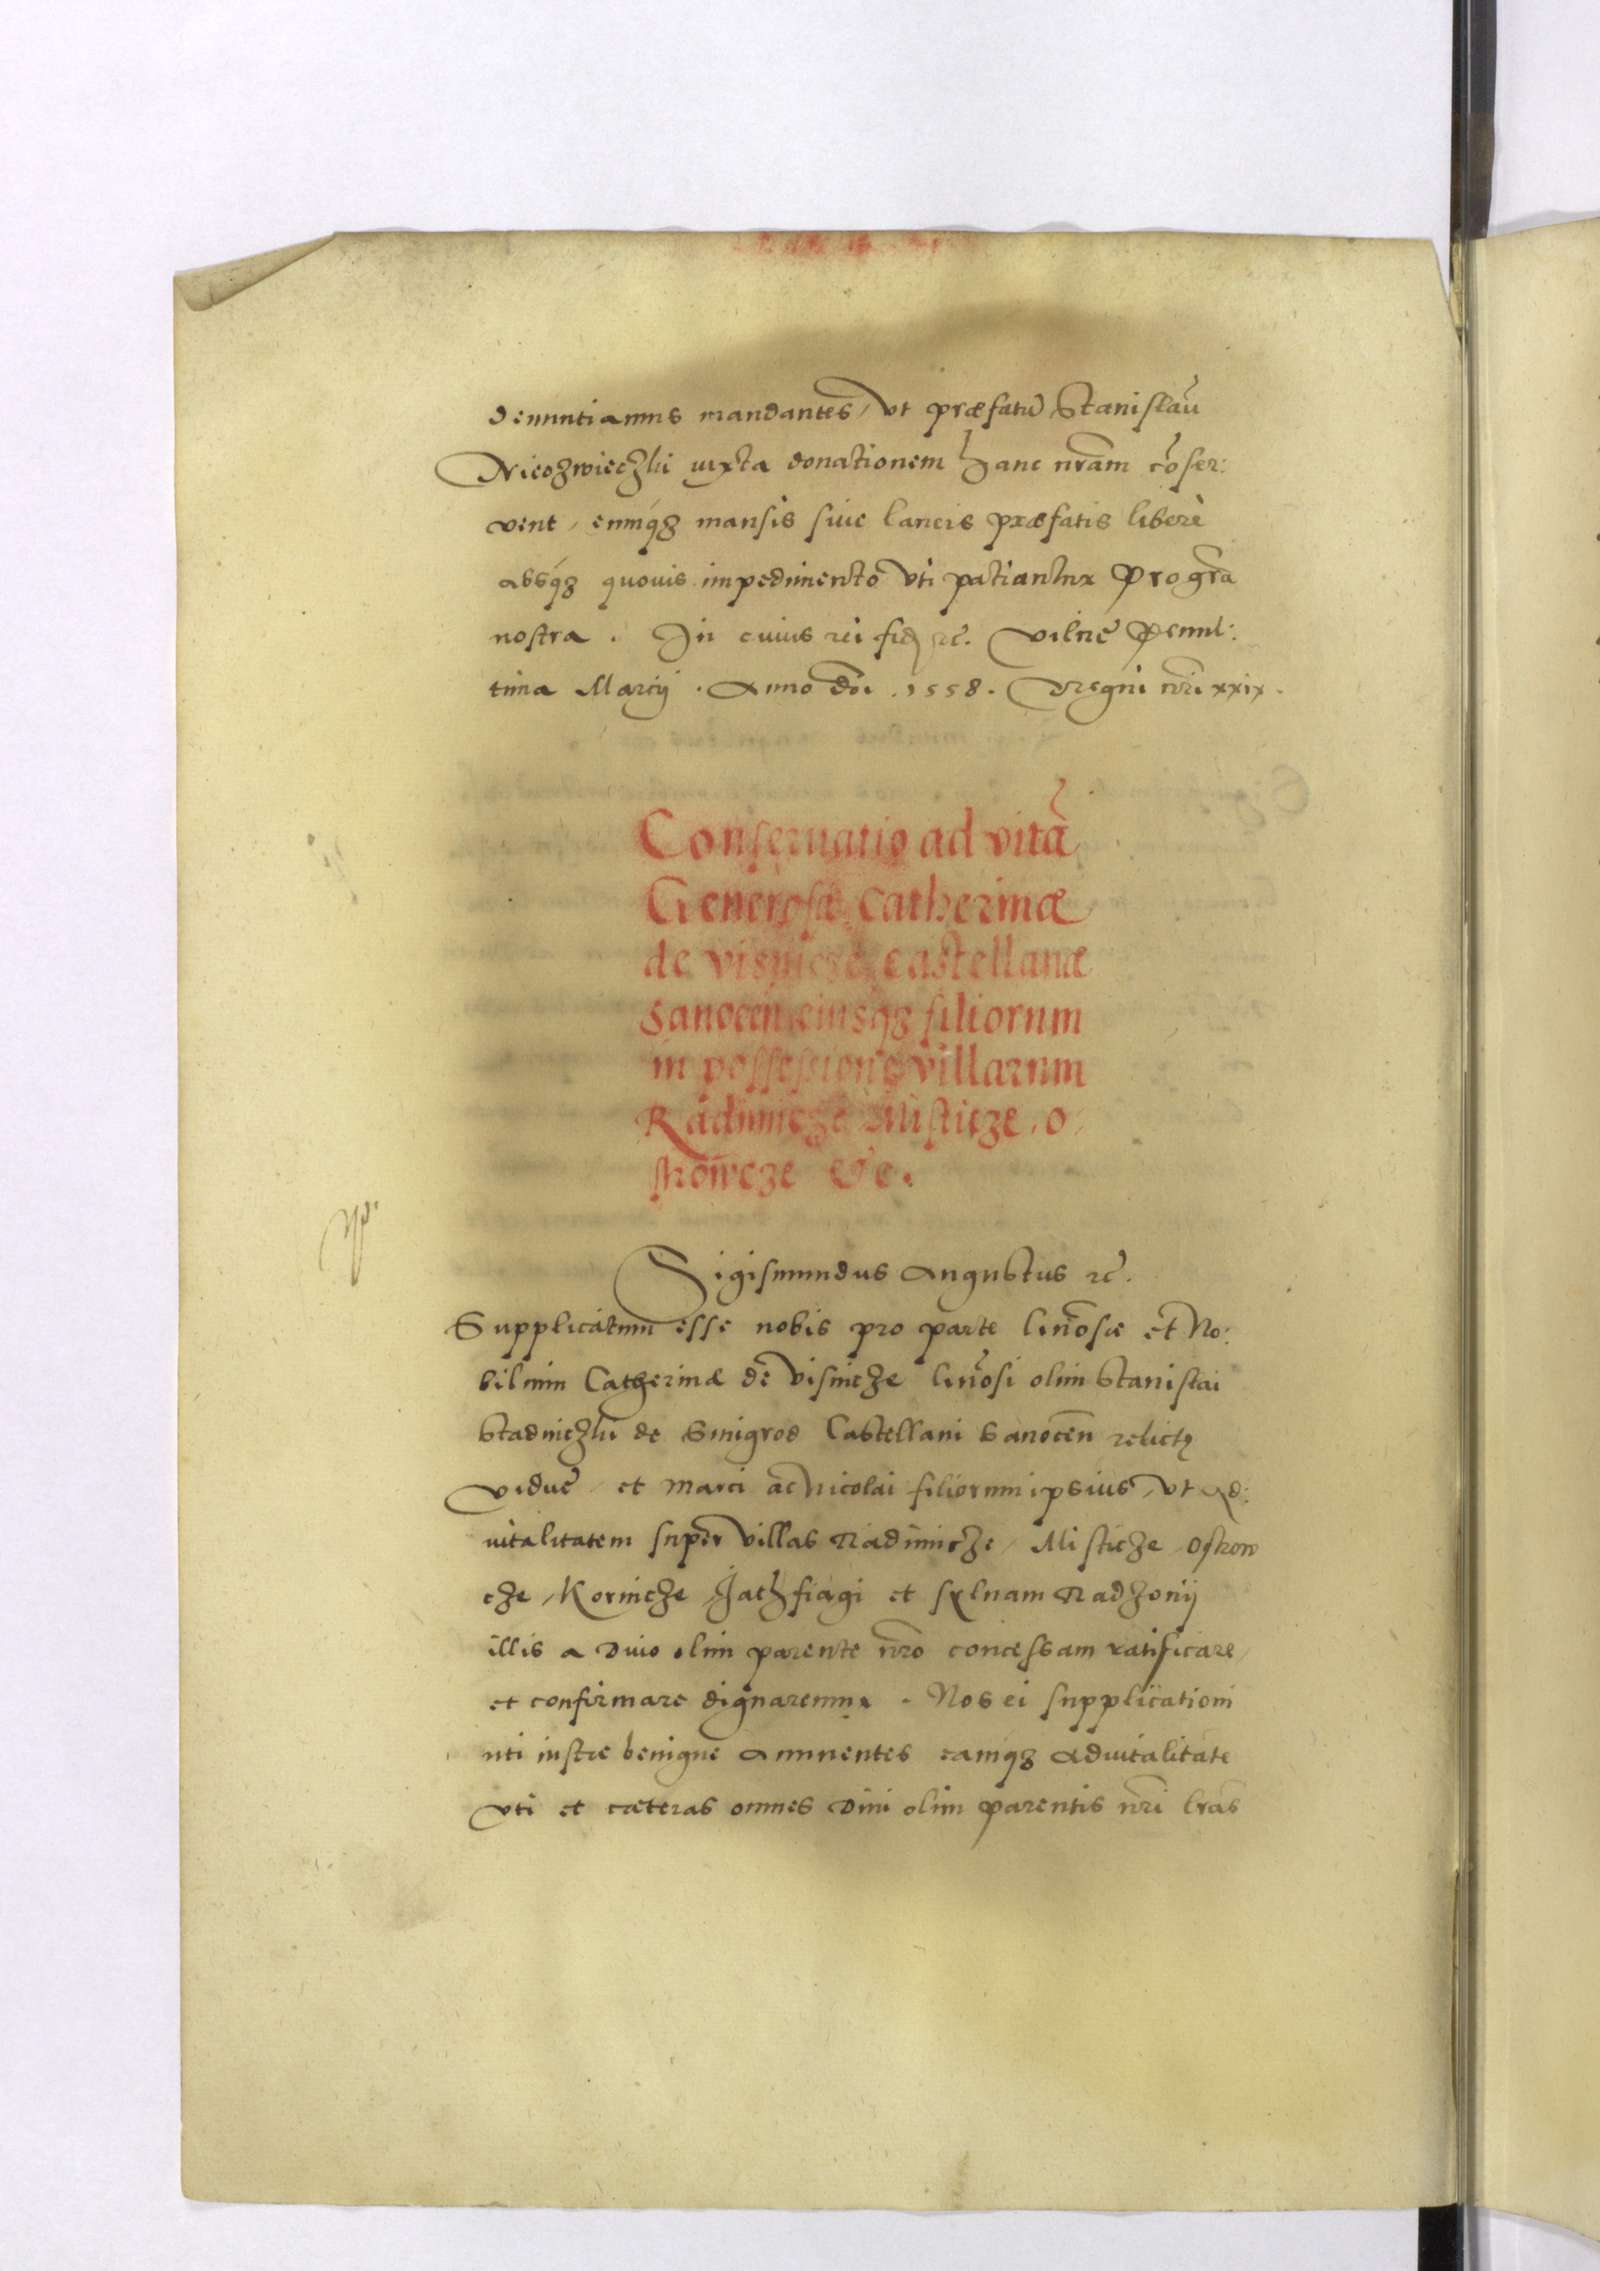 denuntiamus mandantes, vt præfatū Stanislaū
Nieozwieczki iuxta donationem hanc nr̃am cõser:
vent, eumq́z mansis siue laneis præfatis liberè
absq́z quouis impedimento vti patiantur Pro gr̃a
nostra. In cuius rei fid, ꝛc̃. Vilnę Penul:
tima Marcij. Anno dõi. 1558. Vregni nr̃i xxix.
Conseruatio ad vitã
Generosæ Catherinæ
de visnicze castellanæ
sanoceñ eiusqz filiorum
in possessione villarum
Radinicze Misticze, o,
strowcze &c.
Sigismundus Augustus ꝛc̃.
Supplicatum esse nobis pro parte Gñosæ et No:
bilium Catherinæ de Visnicze Gñosi olim Stanislai
Stadniczki de Smigrod Castellani Sanoceñ relictę
Viduę, et Marci ac Nicolai filiorum ipsius, vt Ad:
uitalitatem super villas Radinicze, Misticze, Ostrow
cze, Kornicze Jathfiagi et syluam Radzonij
illis a Diuo olim parente nr̃o concessam ratificare,
et confirmare dignaremur. Nos ei supplicationi
uti iustæ benigne annuentes eamq́z aduitalitate
vti et cæteras omnes Diui olim parentis nr̃i lr̃as